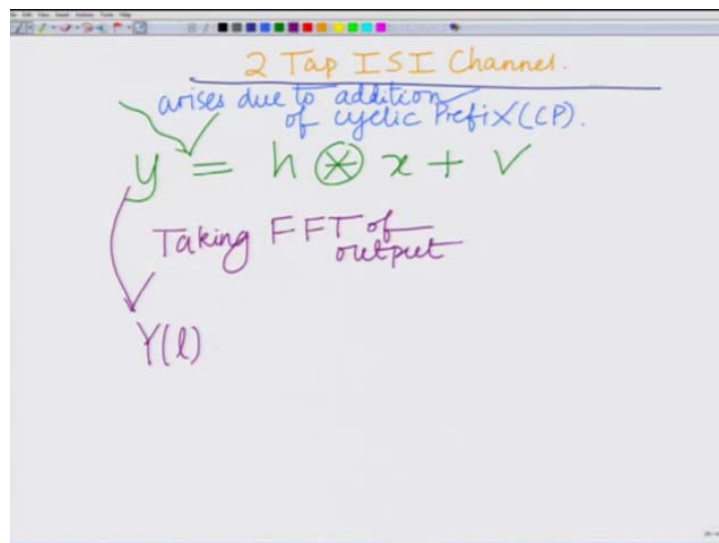 2 Tap ISI Channel.
arises due to addition
of cyclic Prefix (CP).
y = h ⊛ x + v
Taking FFT of
output
Y(l)